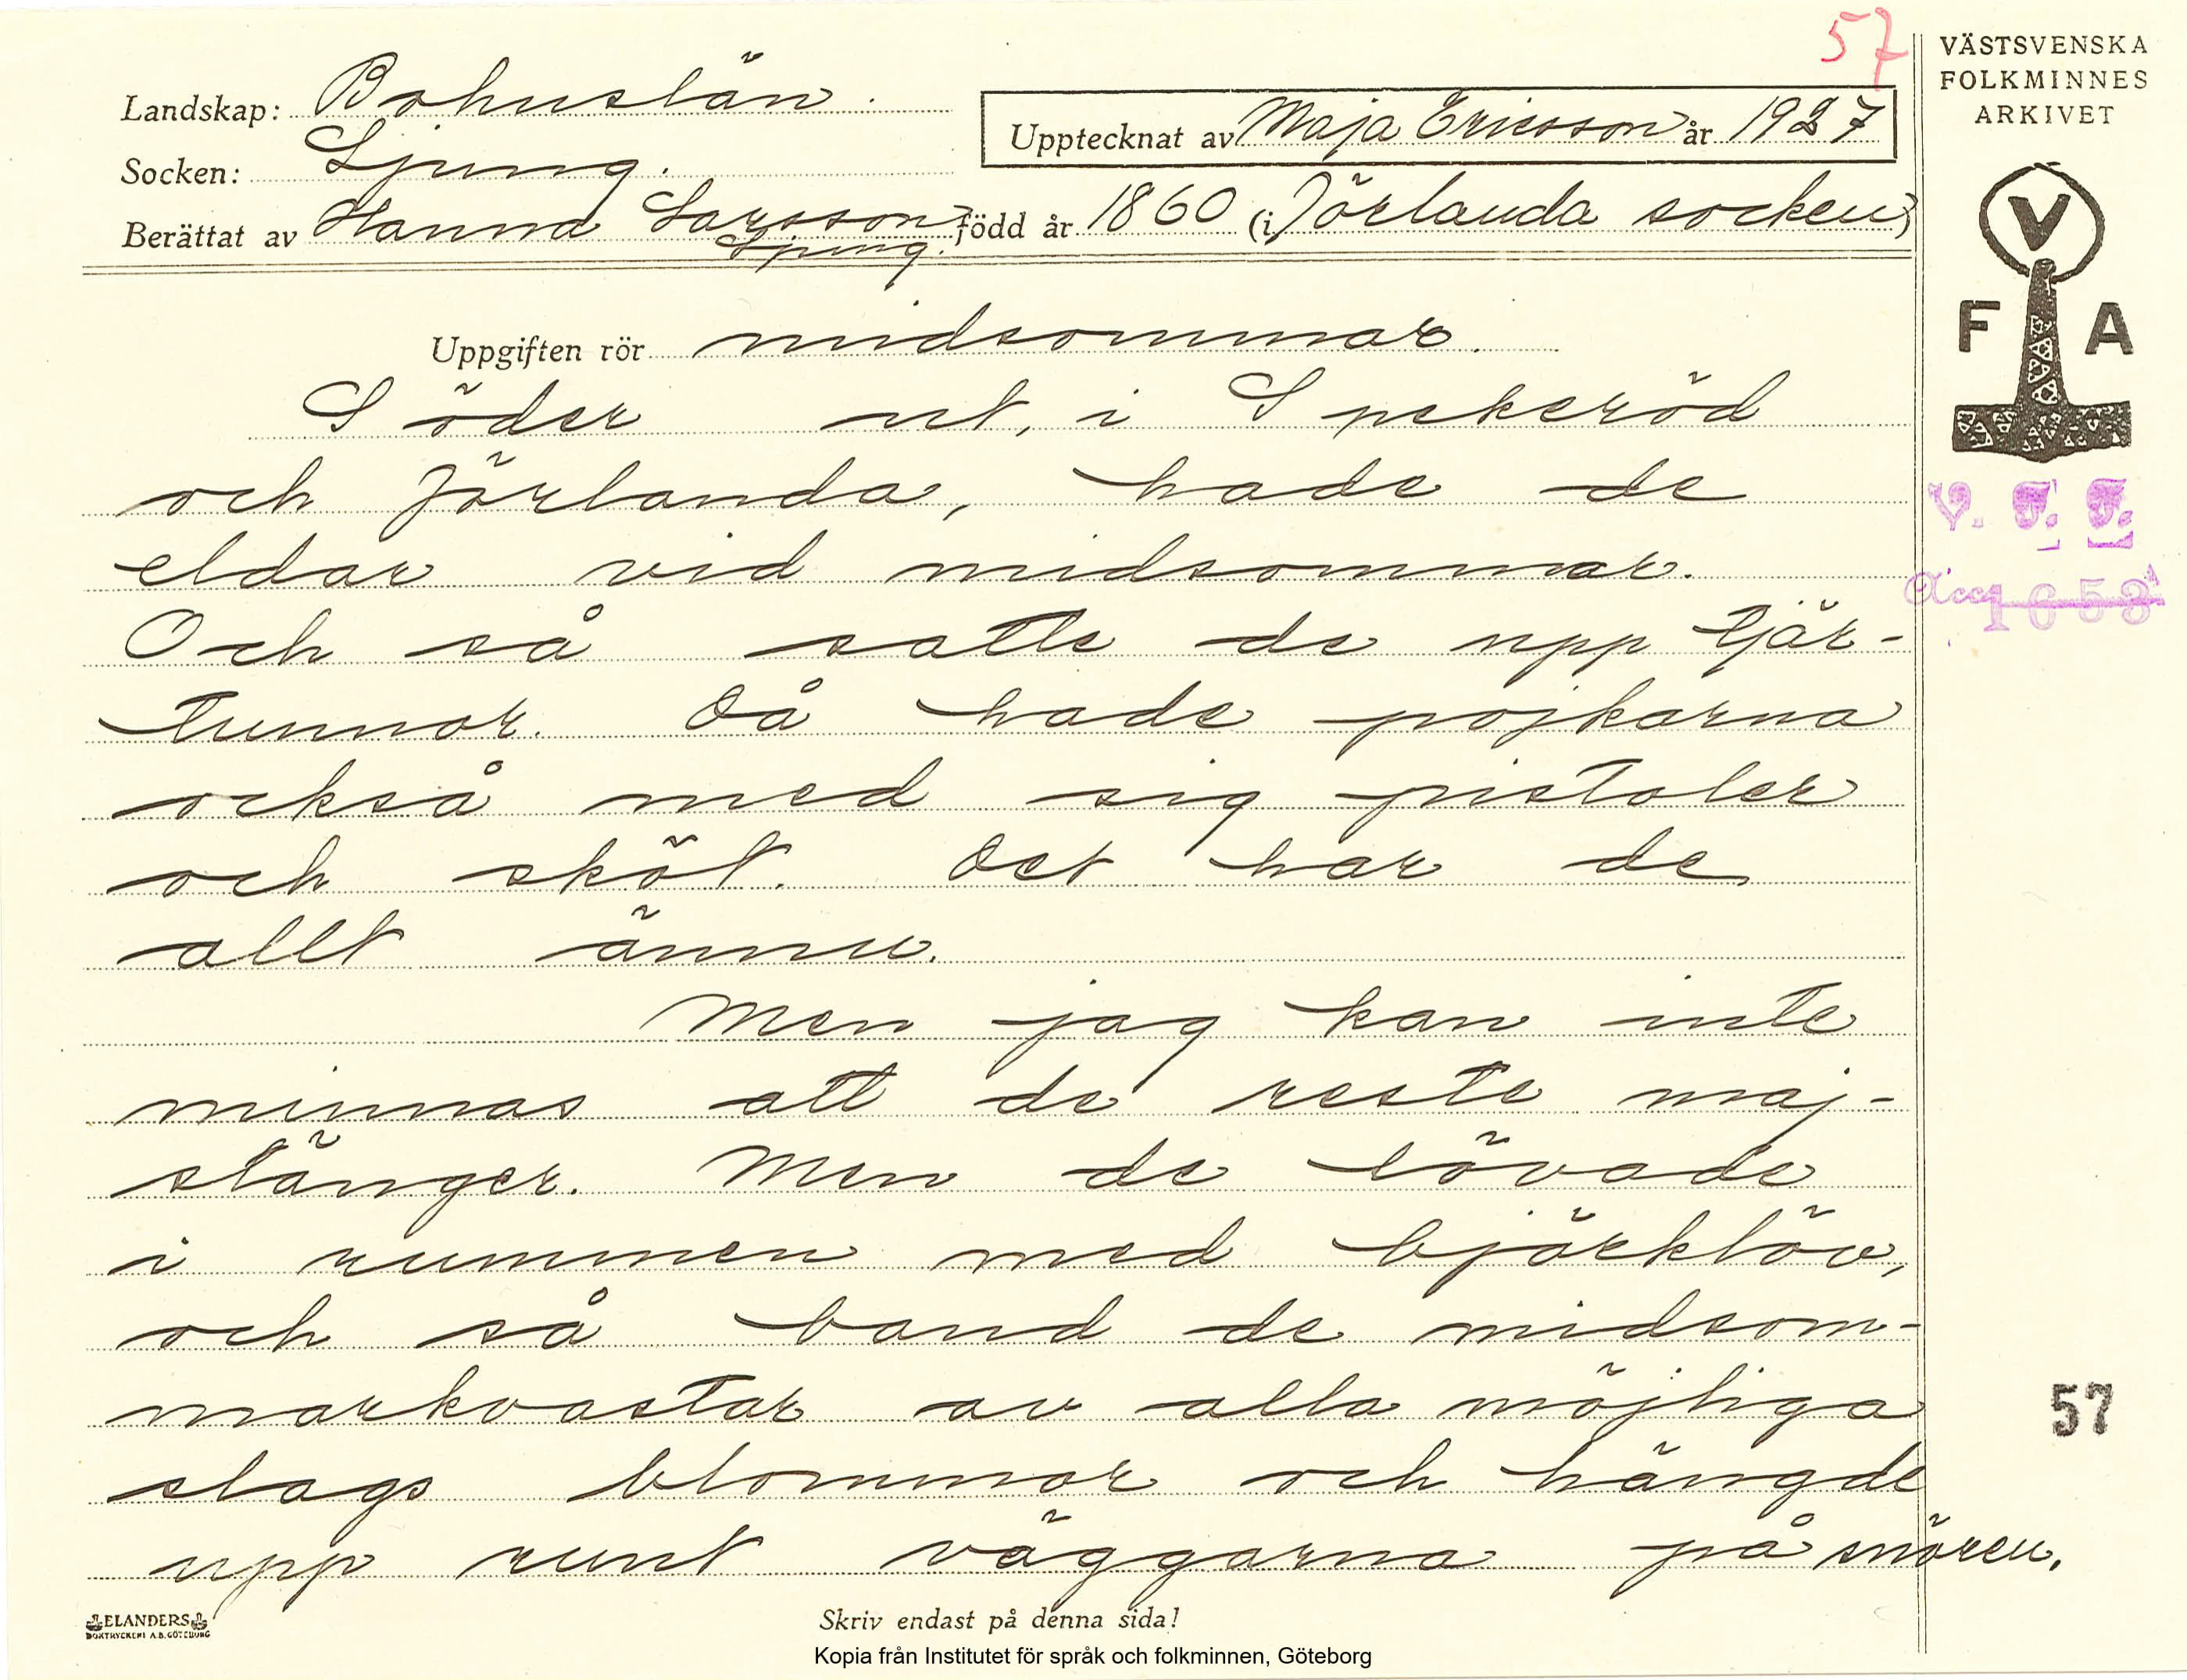 57
VÄSTSVENSKA
FOLKMINNES
ARKIVET
Landskap: Bohuslän.
Upptecknat av Maja Ericsson år 1927
Socken: Ljung.
Berättat av Hanna Larsson född år 1860 (i Jörlanda socken)
Ljung.
V
F A
Uppgiften rör midsommar.
Söder ut, i Spekeröd
och Jörlanda, hade de
eldar vid midsommar.
Och så satte de upp tjär-
tunnor. Då hade pojkarna
också med sig pistoler
och sköt. Det har de
allt ännu.
Men jag kan inte
minnas att de reste maj-
stänger. Men de lövade
i rummen med björklöv,
och så band de midsom-
markvastar av alla möjliga
slags blommor och hängde
upp runt väggarna på snören.
V. F. F.
Acc 1653
57
ELANDERS
BOKTRYCKERI A.B. GÖTEBORG
Skriv endast på denna sida!
Kopia från Institutet för språk och folkminnen, Göteborg